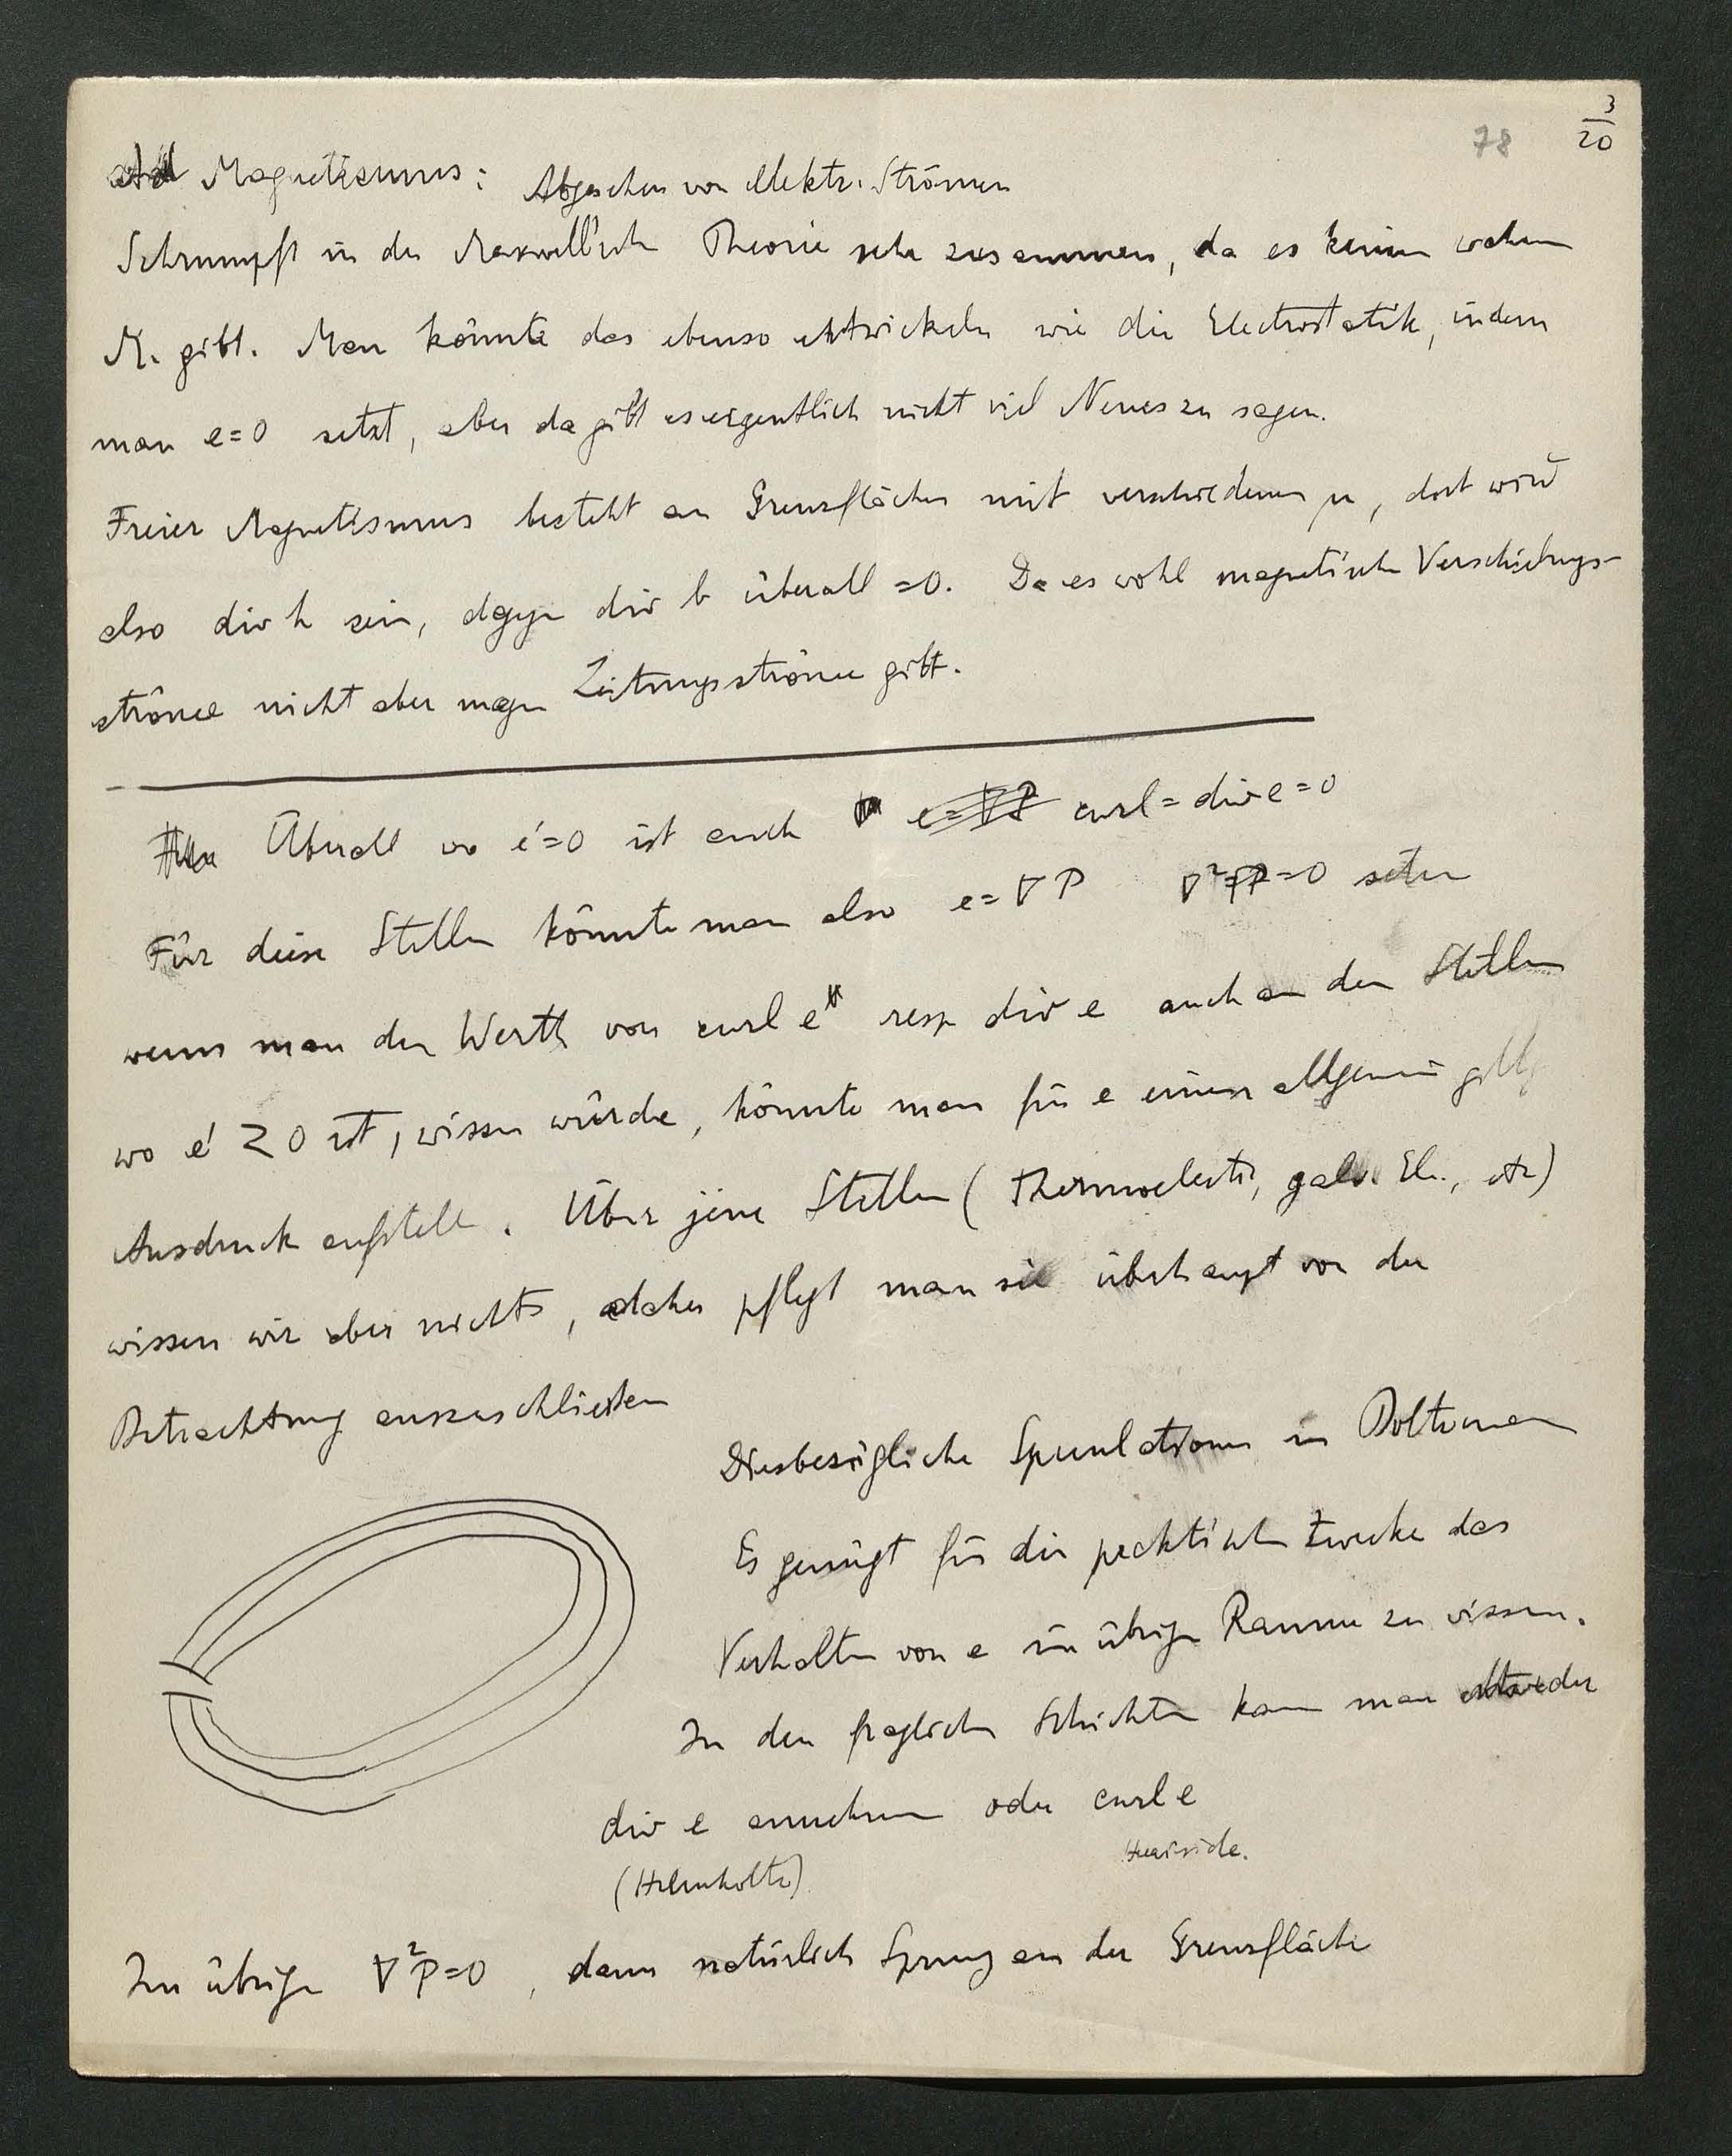 78
3
20
Ad Magnetismus: Abgesehen von elektr. Strömen
Schrumpft in der Maxwell'schen Theorie sehr zusammen, da es keinen wahren
M. gibt. Man könnte das ebenso entwickeln wie die Electrostatik, indem
man e=0 setzt, aber da gibt es eigentlich nicht viel Neues zu sagen.
Freier Magnetismus besteht an Grenzflächen mit verschiedenem μ, dort wird
also div h sein, dagegen div b überall =0. Da es wohl magnetische Verschiebungs-
ströme nicht aber magn Leitungsströme gibt.
Überall wo e'=0 ist auch e=∇P curl=div e=0
Für diese Stellen könnte man also e=∇P ∇²P=0 setzen
wenn man den Werth von curl e resp div e auch an den Stellen
wo e' ≷ 0 ist, wissen würde, könnte man für e einen allgemein
Ausdruck aufstellen. Über jene Stellen (Thermoelectr, galv. El., etc)
wissen wir aber nichts, daher pflegt man sie überhaupt von der
Betrachtung auszuschließen
Diesbezügliche Speculationen in Boltzmann
Es genügt für die praktischen Zwecke das
Verhalten von e im übrigen Raume zu wissen.
In den fraglichen Schichten kann man entweder
div e annehmen oder curl e
(Helmholtz) Heaviside.
Im übrigen ∇²P=0, dann natürlich Sprung an der Grenzfläche